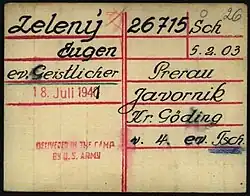 26
Zelený
26715 Sch
Eugen
5.2.03
ev. Geistlicher
Prerau
18. Juli 194
Javornik
Kr. Göding
DELIVERED IN THE CAMP
BY U.S. ARMY
v. 4 ev. Tsch.